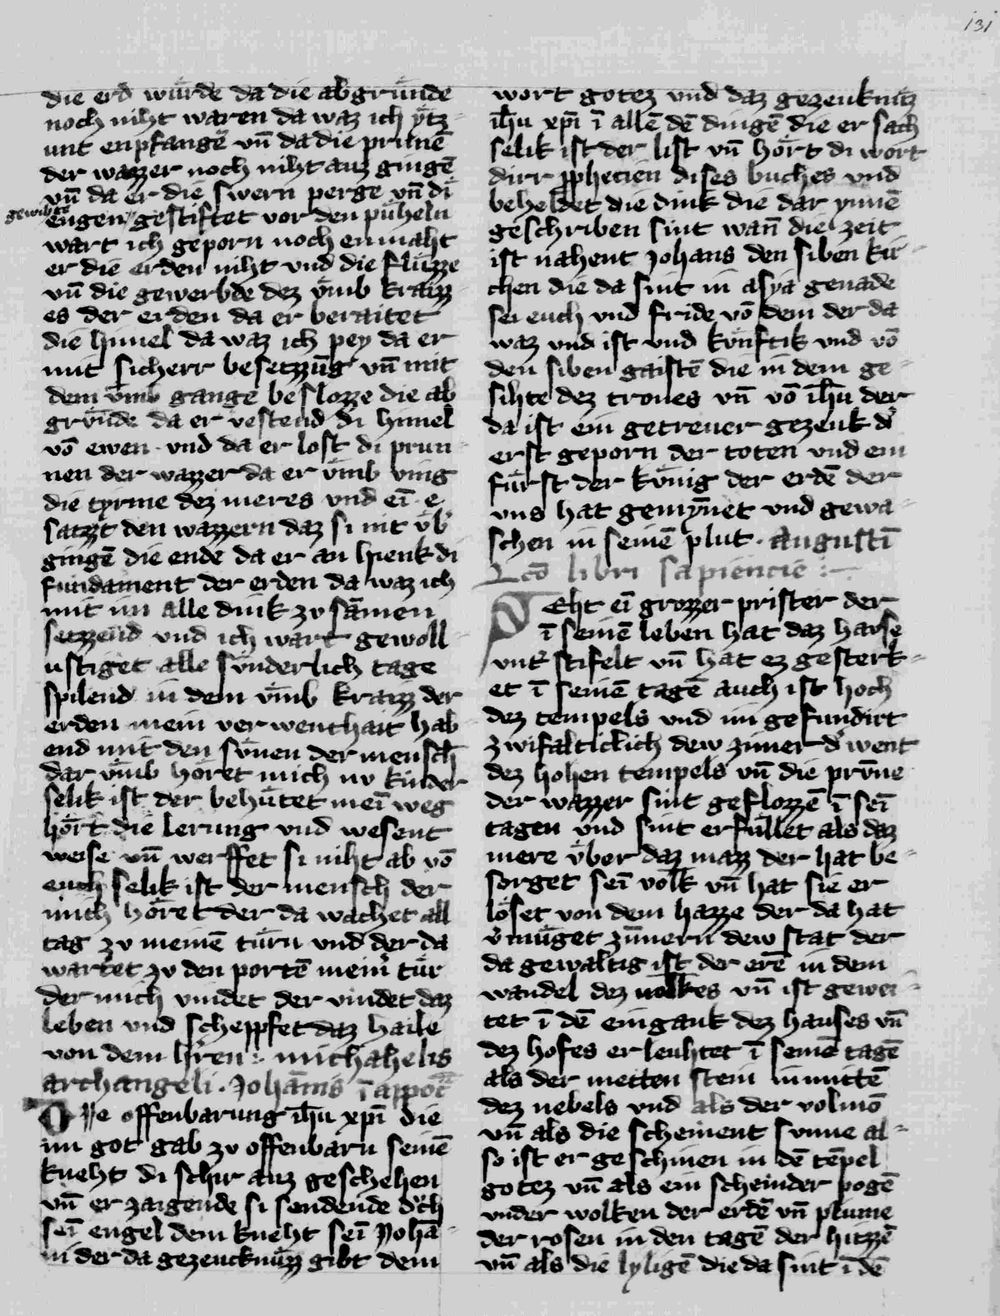 131
die erd würde da die abgründe
noch niht waren da waz ich ytz
unt enpfangē vn̄ da die prunnē
der wazzer noch niht auz gingē
vn̄ da er die swern perge vn̄ di
engen gestiftet vor den püheln
wart ich geporn noch enmaht
er die erden niht vnd die flüzze
vn̄ die gewerbde dez vmb kraizz
es der erden da er beraitet
die himel da waz ich pey da er
mit sicherr besetzzūg vn̄ mit
dem vmb gange beslozze die ab
gründe da er vestend di himel
vō ewen · vnd da er lost di prun
nen der wazzer da er vmb ving
die tyrme dez meres vnd ei e
satzzt den wazzern daz si iht vb̄
gingē die ende da er an hienk di
fundament der erden da waz ich
mit im alle dink zv sāmen
setzzend vnd ich wart gewoll
ustiget alle sunderlich tage
spilend in dem vmb kraizz der
erden mein ver wenthait hab
end mit den sūnen der mensch̄
dar vmb höret mich nv kinder
selik ist der behütet mei weg
hört die lerung vnd wesent
weise vn̄ werffet si niht ab vō
euch selik ist der mensch der
mich höret der da wachet all
tag zv meinē türn vnd der da
wartet zv den portē mein̄ tür
der mich vindet der vindet daz
leben vnd scheppfet daz haile
von dem h̄ren : michahelis
archangeli · Johānis ī appoc̄
DJe offenbarung ih̄u xp̄i die
im got gab zv offenbarn seinē
kneht di schir auz geschehen
vn̄ er zaigende si sendende d̄ch
sei engel dem kneht sei Johā
in der da gezeucknüzz gibt dem
wort gotez vnd daz gezeuknüz
ih̄u xp̄i ī allē dē dingē die er sach
selik ist der list vn̄ hört di wort
dirr p̄phecien dises buches vnd
beheldet die dink die dar ynnē
geschriben sint wan̄ die zeit
ist nahent Johans den siben kir
chen die da sint in asya genade
sei euch vnd fride vō dem der da
waz vnd ist vnd künftik vnd vō
den siben gaistē die in dem ge
sihte dez trones vn̄ vō ih̄u der
da ist ein getrewer gezeuk d̄
erst geporn der toten vnd ein
fürst der künig der erdē der
vns hat gemynnet vnd gewa
schen in seinē plut · augusti
Lcō libri sapiencie :
NEht ei grozzer prister der
ī seinē leben hat daz hause
vnt̄ stifelt vn̄ hat ez gesterk
et ī seinē tagē auch ist hoch
dez tempels vnd im gefundirt
zwifalticlich dew zimer d̄ went
dez hohen tempels vn̄ die prūne
der wazzer sint geflozzē ī sei
tagen vnd sint erfüllet als daz
mere vber daz mazz der hat be
sorget sei volk vn̄ hat sie er
löset von dem hazze der da hat
v̄müget zūnern dew stat der
da gewaltig ist der erē in dem
wandel dez volkes vn̄ ist gewei
tet ī dē eingank dez hauses vn̄
dez hofes erleuhtet ī seinē tagē
als der metten stern inmittē
dez nebels vnd als der volmō
vn̄ als die scheinent sunne al
so ist er geschinen in dē tēpel
gotez vn̄ als ein scheinder pogē
vnder wolken der erdē vn̄ plume
der rosen in den tagē der hitzzē
vn̄ als die lyligē die da sint ī dē